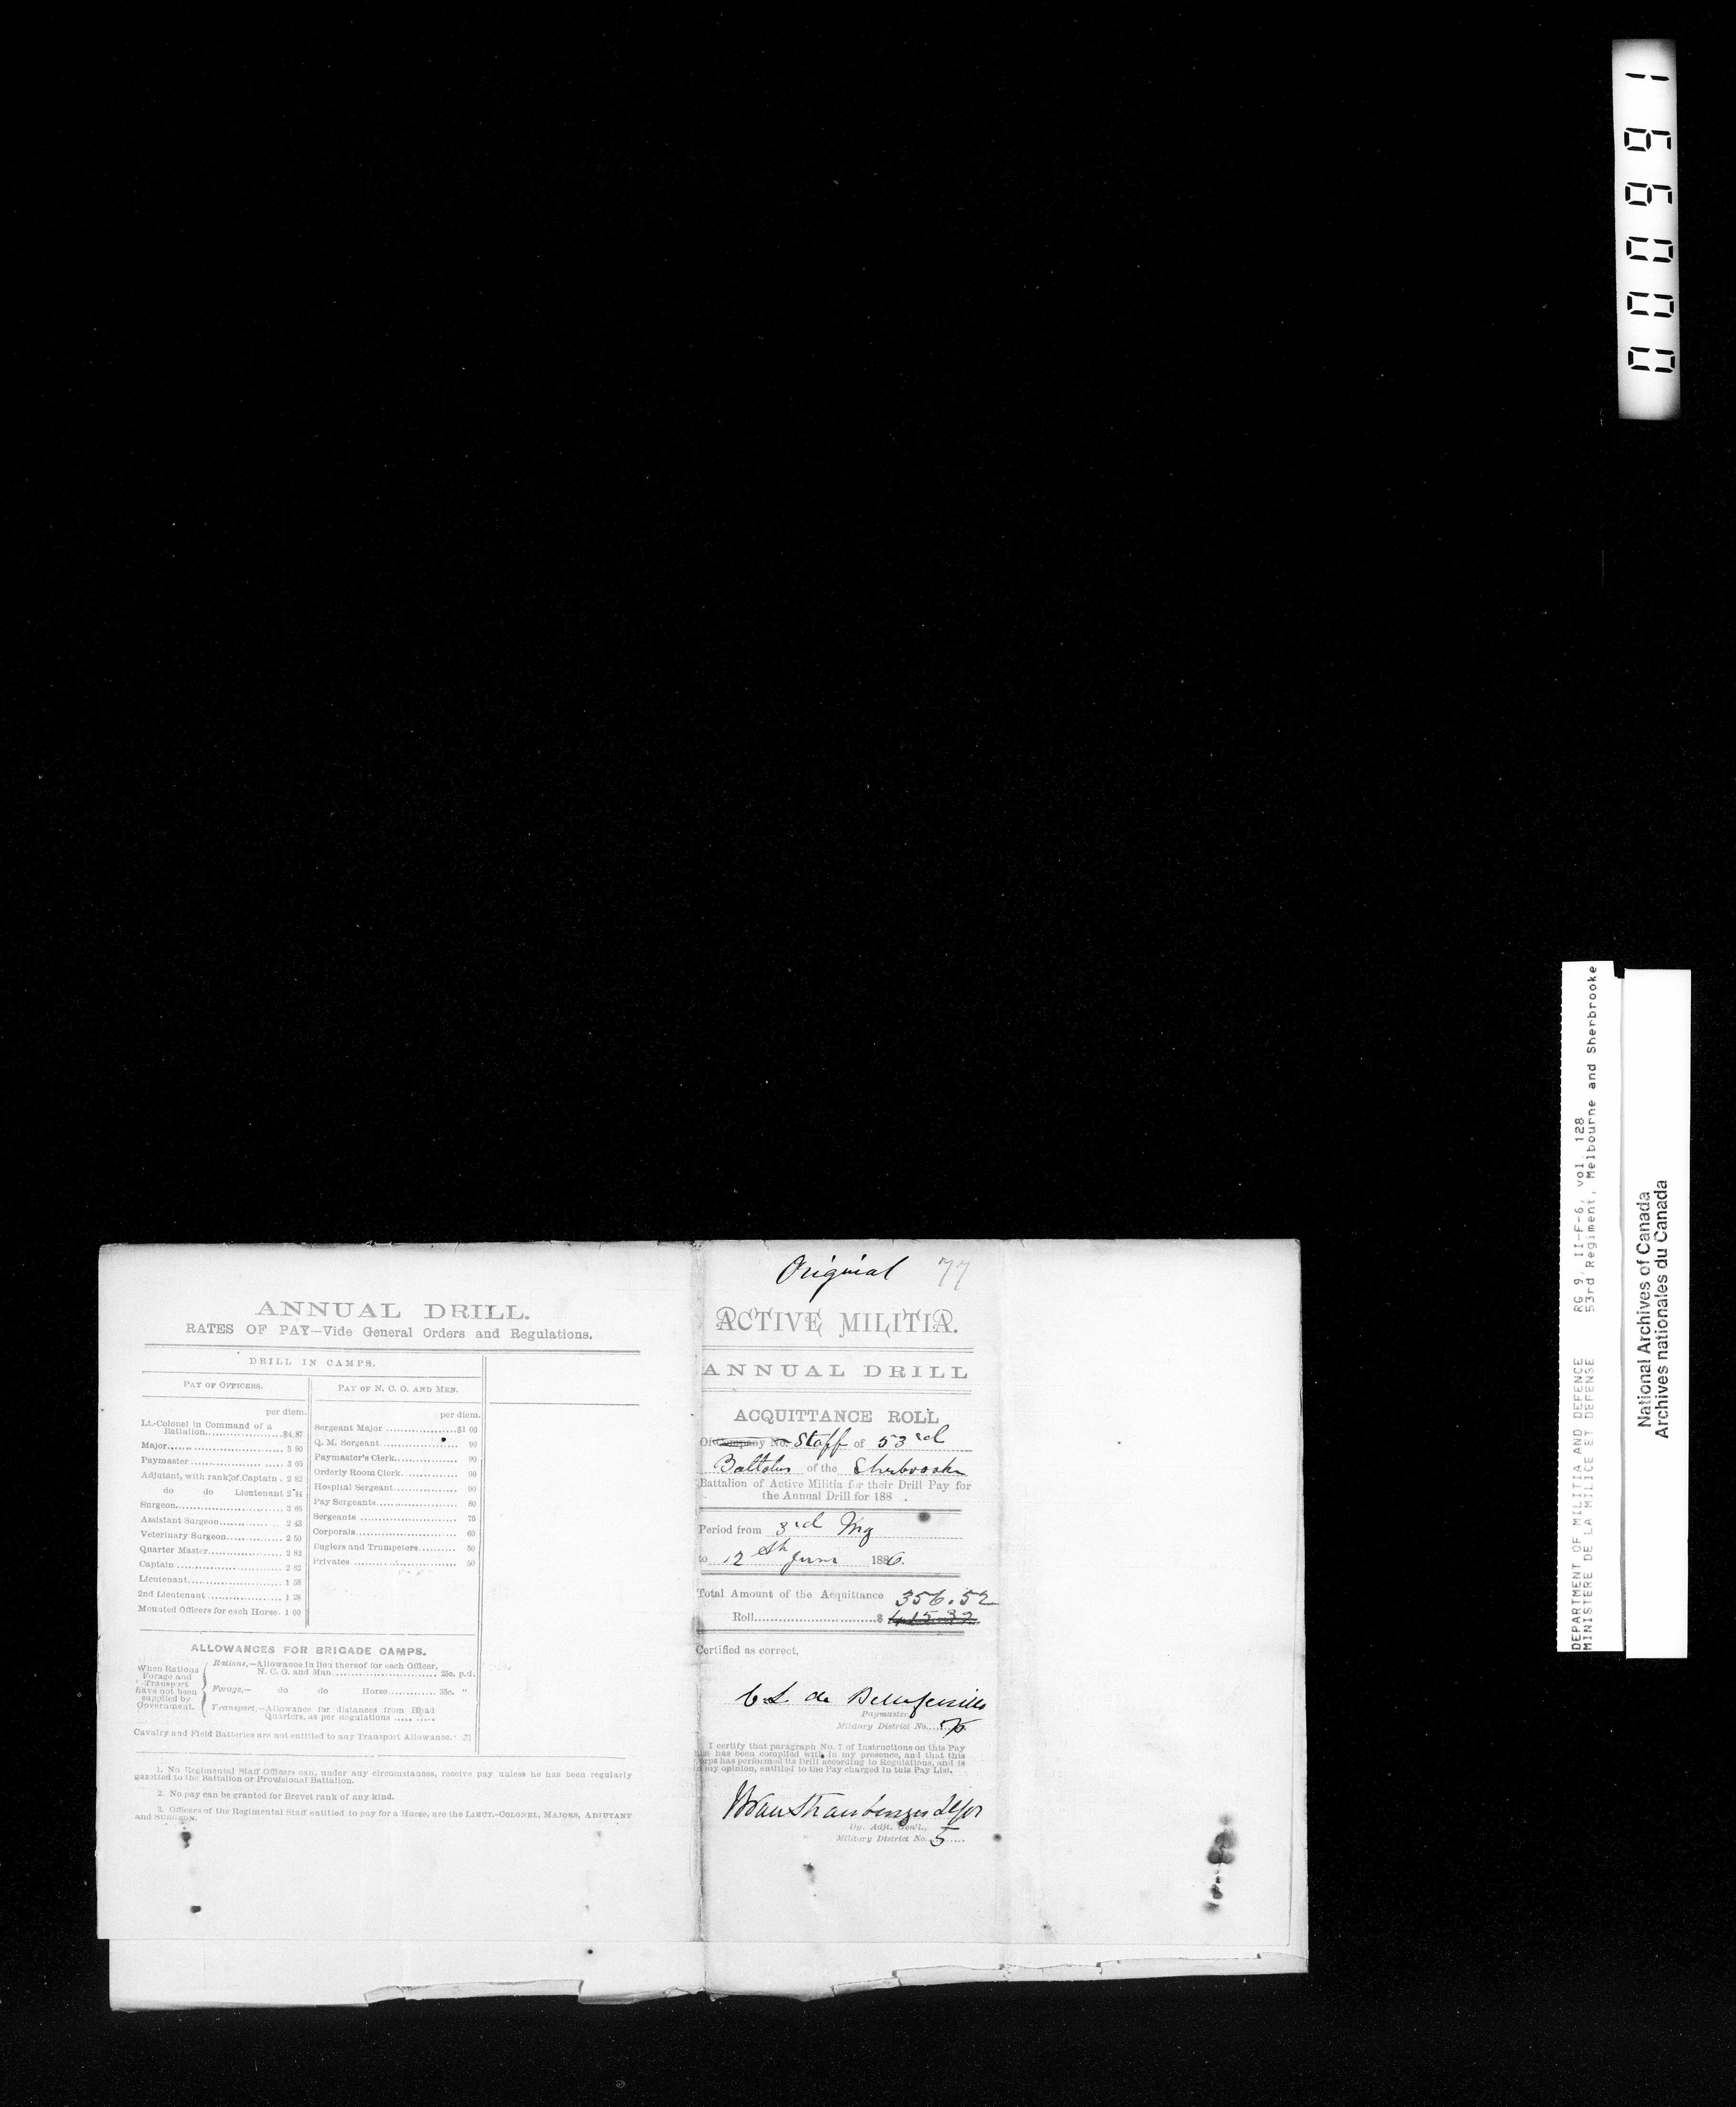 ANNUAL DRILL.
RATES OF PAY—Vide General Orders and Regulations.
DRILL IN CAMPS.
PAY OF OFFICERS.
per diem.
Lt.-Colonel in Command of a
Battalion $4.87
Major 3 90
Paymaster 3 05
Adjutant, with rank of Captain 2 82
do do Lieutenant 2 44
Surgeon 3 65
Assistant Surgeon 2 43
Veterinary Surgeon 2 50
Quarter Master 2 82
Captain 2 82
Lieutenant 1 58
2nd Lieutenant 1 28
Mounted Officers for each Horse 1 00
PAY OF N. C. O. AND MEN.
per diem.
Sergeant Major $1 00
Q. M. Sergeant 90
Paymaster's Clerk 90
Orderly Room Clerk 90
Hospital Sergeant 90
Pay Sergeants 80
Sergeants 75
Corporals 60
Buglers and Trumpeters 50
Privates 50
ALLOWANCES FOR BRIGADE CAMPS.
When Rations
Forage and
Transport
have not been
supplied by
Government.
Rations,—Allowance in lieu thereof for each Officer,
N. C. O. and Man 25c. p.d.
Forage,— do do Horse 35c. "
Transport,—Allowance for distances from Head
Quarters, as per Regulations
Cavalry and Field Batteries are not entitled to any Transport Allowance.
1. No Regimental Staff Officers can, under any circumstances, receive pay unless he has been regularly
gazetted to the Battalion or Provisional Battalion.
2. No pay can be granted for Brevet rank of any kind.
3. Officers of the Regimental Staff entitled to pay for a Horse, are the LIEUT.-COLONEL, MAJORS, ADJUTANT
and SURGEON.
Original 77
ACTIVE MILITIA.
ANNUAL DRILL
ACQUITTANCE ROLL
Of Company No. Staff of 53rd
of the Sherbrooke
Battalion of Active Militia for their Drill Pay for
the Annual Drill for 188 .
Period from 3rd
to 12th June 1886.
Total Amount of the Acquittance 356.52
Roll $ 415.32
Certified as correct,
Paymaster
Military District No.
I certify that paragraph No. 7 of Instructions on this Pay
List has been complied with in my presence, and that this
Corps has performed its Drill according to Regulations, and is
in my opinion, entitled to the Pay charged in this Pay List.
Dy. Adjt. Gen'l.,
Military District No. 5
000991
DEPARTMENT OF MILITIA AND DEFENCE RG 9, II-F-6, vol. 128
MINISTERE DE LA MILICE ET DEFENSE 53rd Regiment, Melbourne and Sherbrooke
National Archives of Canada
Archives nationales du Canada